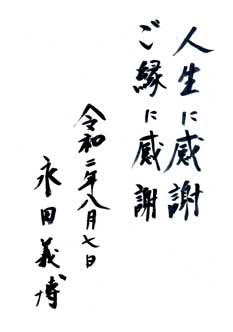 人生に感謝
ご縁に感謝
令和二年八月七日
永田義博